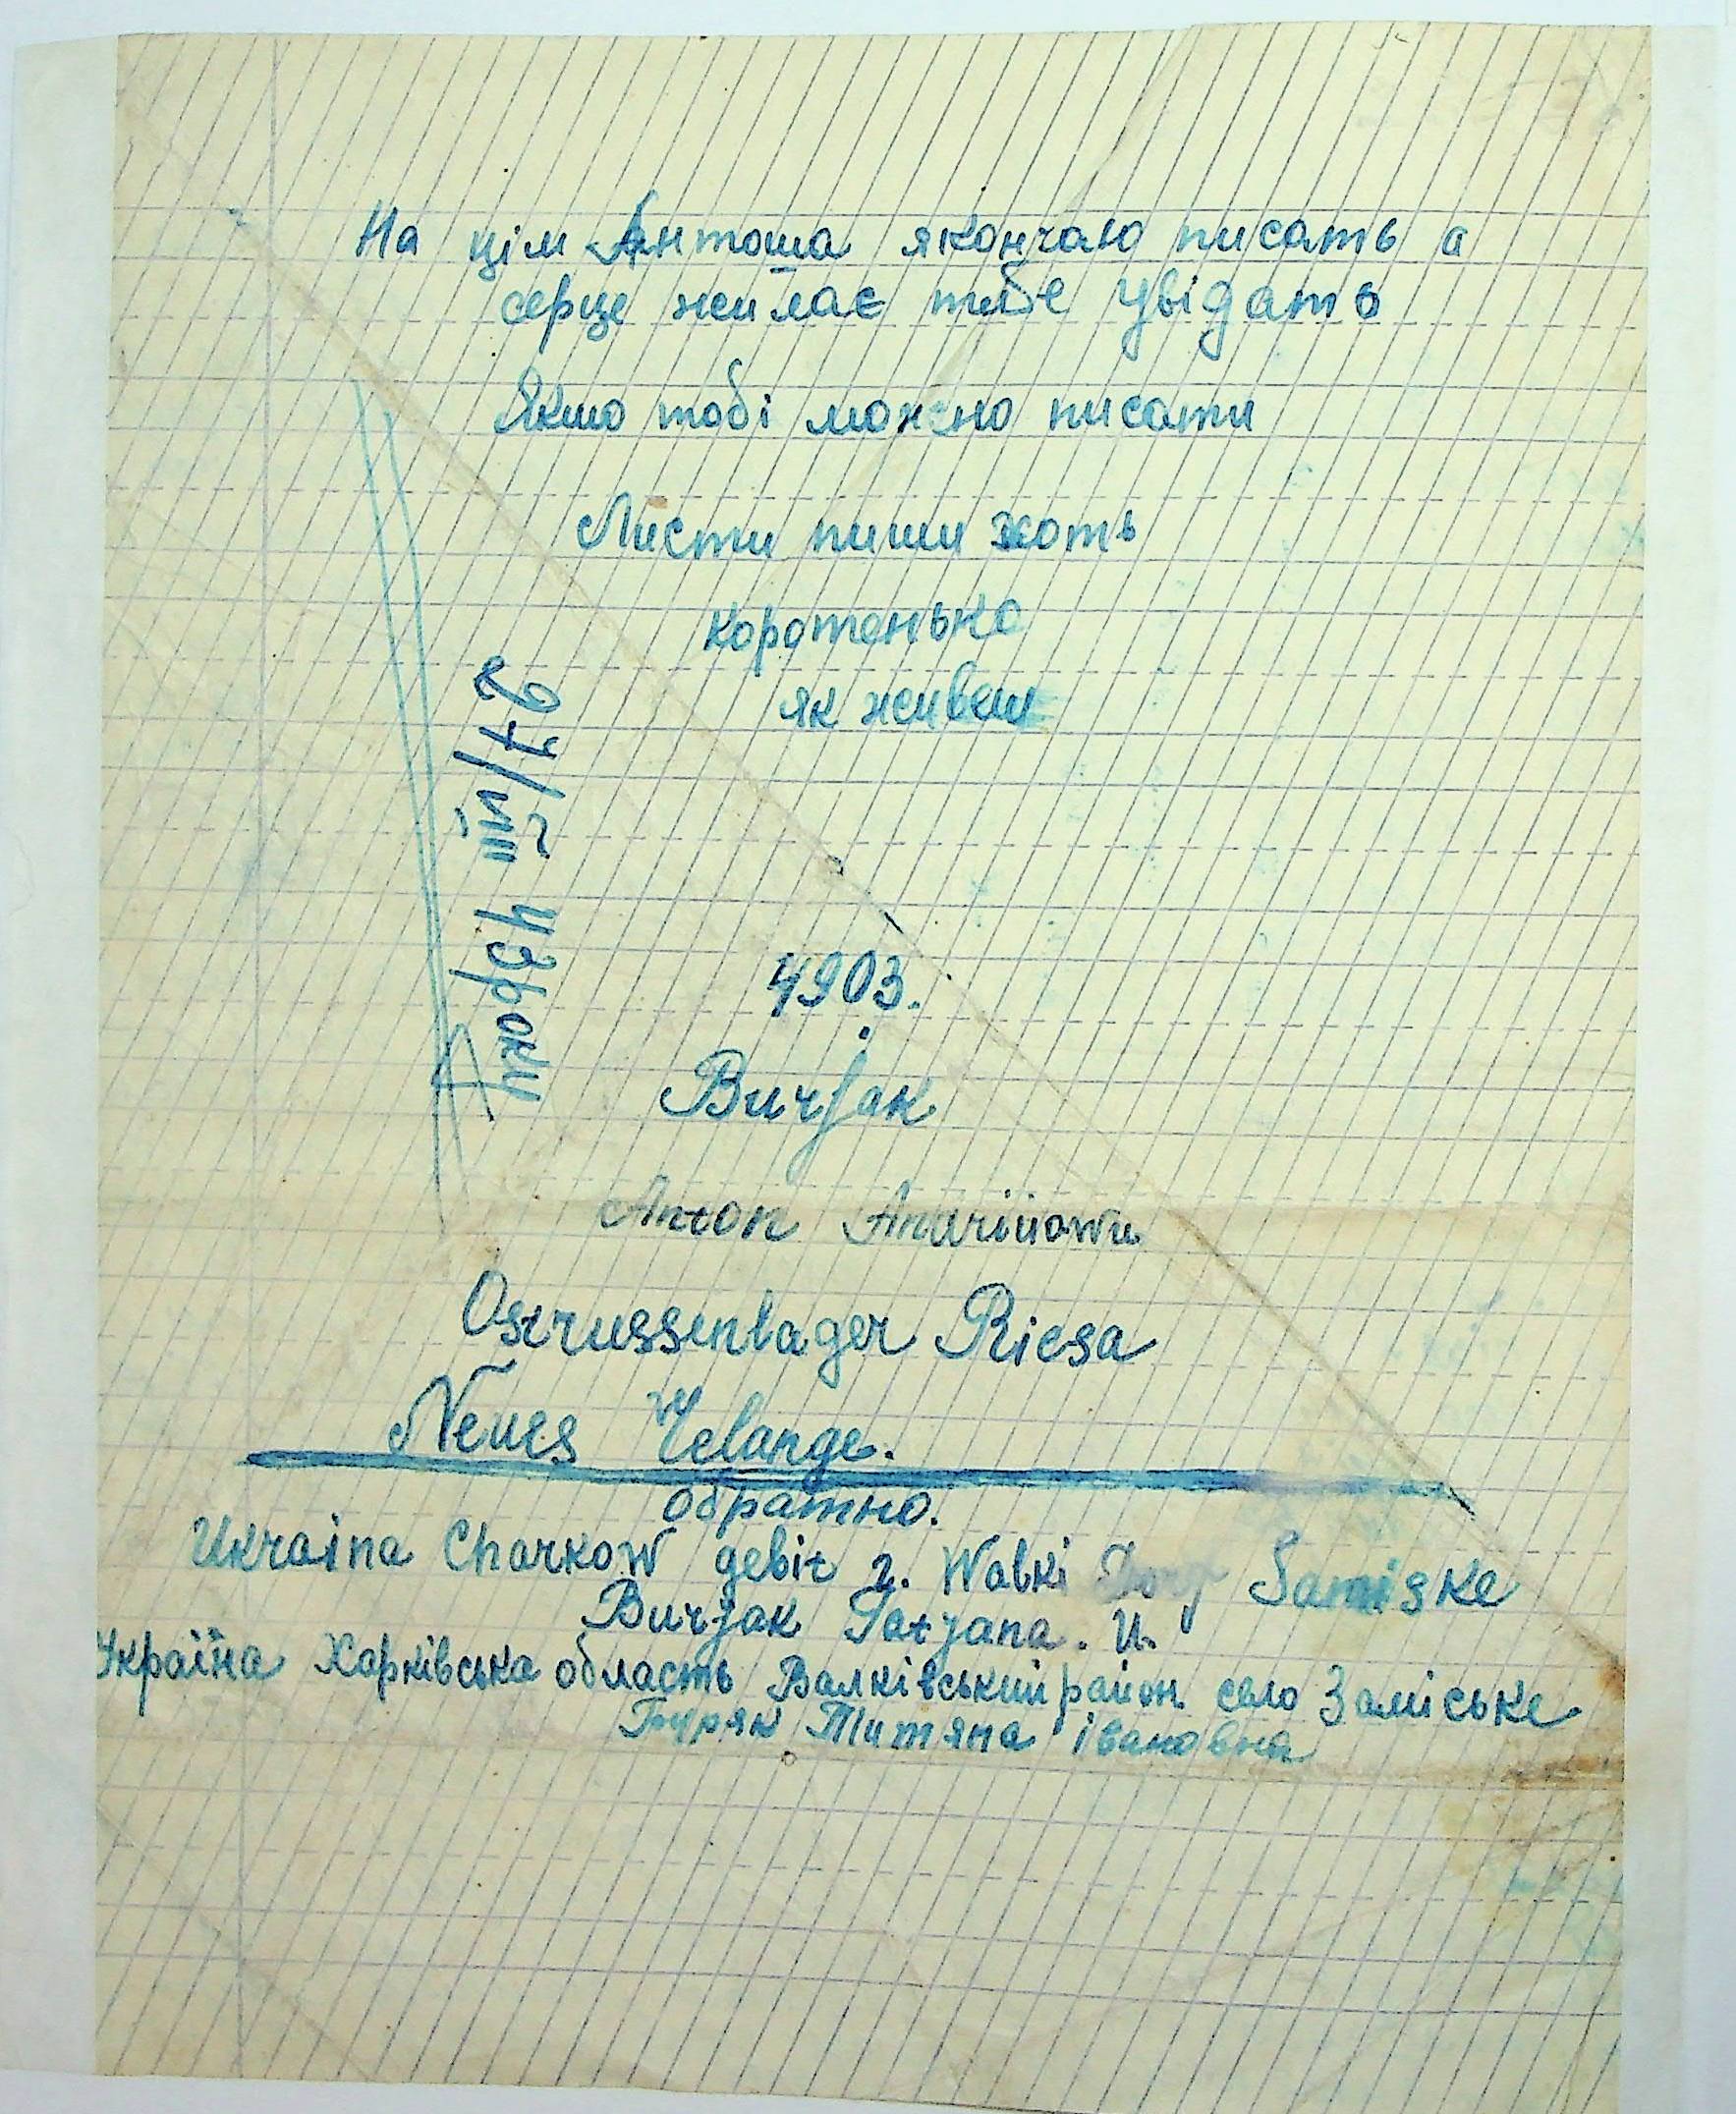 На цім Антоша якончаю писать а
серце жилає тибе увідать
Якшо тобі можно писати
Листи пиши хоть
коротенько
як живеш
4903.
Burjak
Anton Andriiowu
Ostrussenlager Riesa
Neues Gelange.
обратно.
Ukraina Charkow gebit 2. Walki Dorf Samiske
Burjak Tatjana. U.
Україна Харківська область Валківський район село Заміське
Буряк Титяна івановна